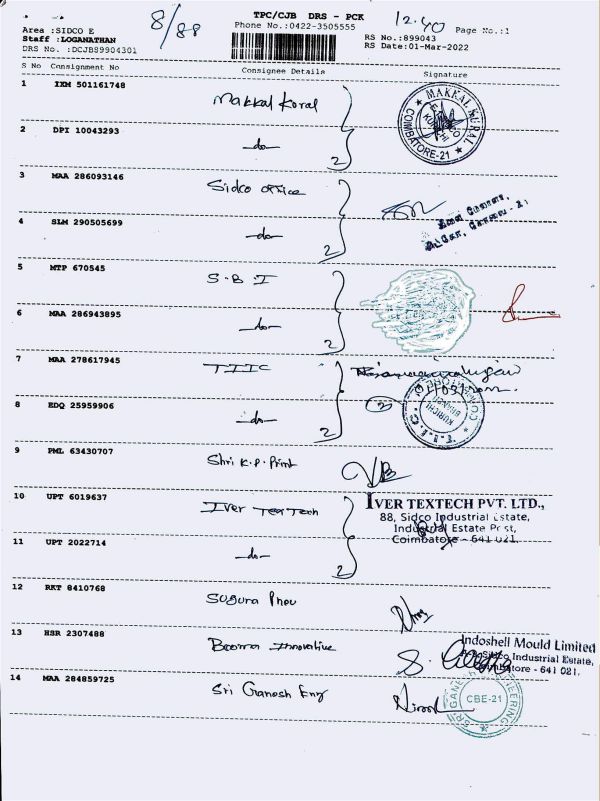 8/88
TPC/CJB DRS - PCK
Phone No.:0422-3505555
12.40
Page No.:1
Area :SIDCO E
Staff :LOGANATHAN
DRS No. :DCJB89904301
RS No.:899043
RS Date:01-Mar-2022
S No Consignment No Consignee Details Signature
1 IXM 501161748 Makkal Koral
MAKKAL KURAL
COIMBATORE-21
2 DPI 10043293 -do- 2
3 MAA 286093146 Sidco office
4 SLM 290505699 -do- 2
5 MTP 670545 S.B.I
6 MAA 286943895 -do- 2
7 MAA 278617945 TIIC
8 EDQ 25959906 -do- 2
2
KURICHI
BRANCH
9 PML 63430707 Shri K.P. Print
10 UPT 6019637 Iver Tex Tech
IVER TEXTECH PVT. LTD.,
88, Sidco Industrial Estate,
Industrial Estate Post,
Coimbatore - 641 021.
11 UPT 2022714 -do- 2
12 RKT 8410768
13 HSR 2307488 Innovative
Indoshell Mould Limited
Industrial Estate,
Coimbatore - 641 021.
14 MAA 284859725 Sri Ganesh Eng
SRI GANESH ENGINEERING
CBE-21